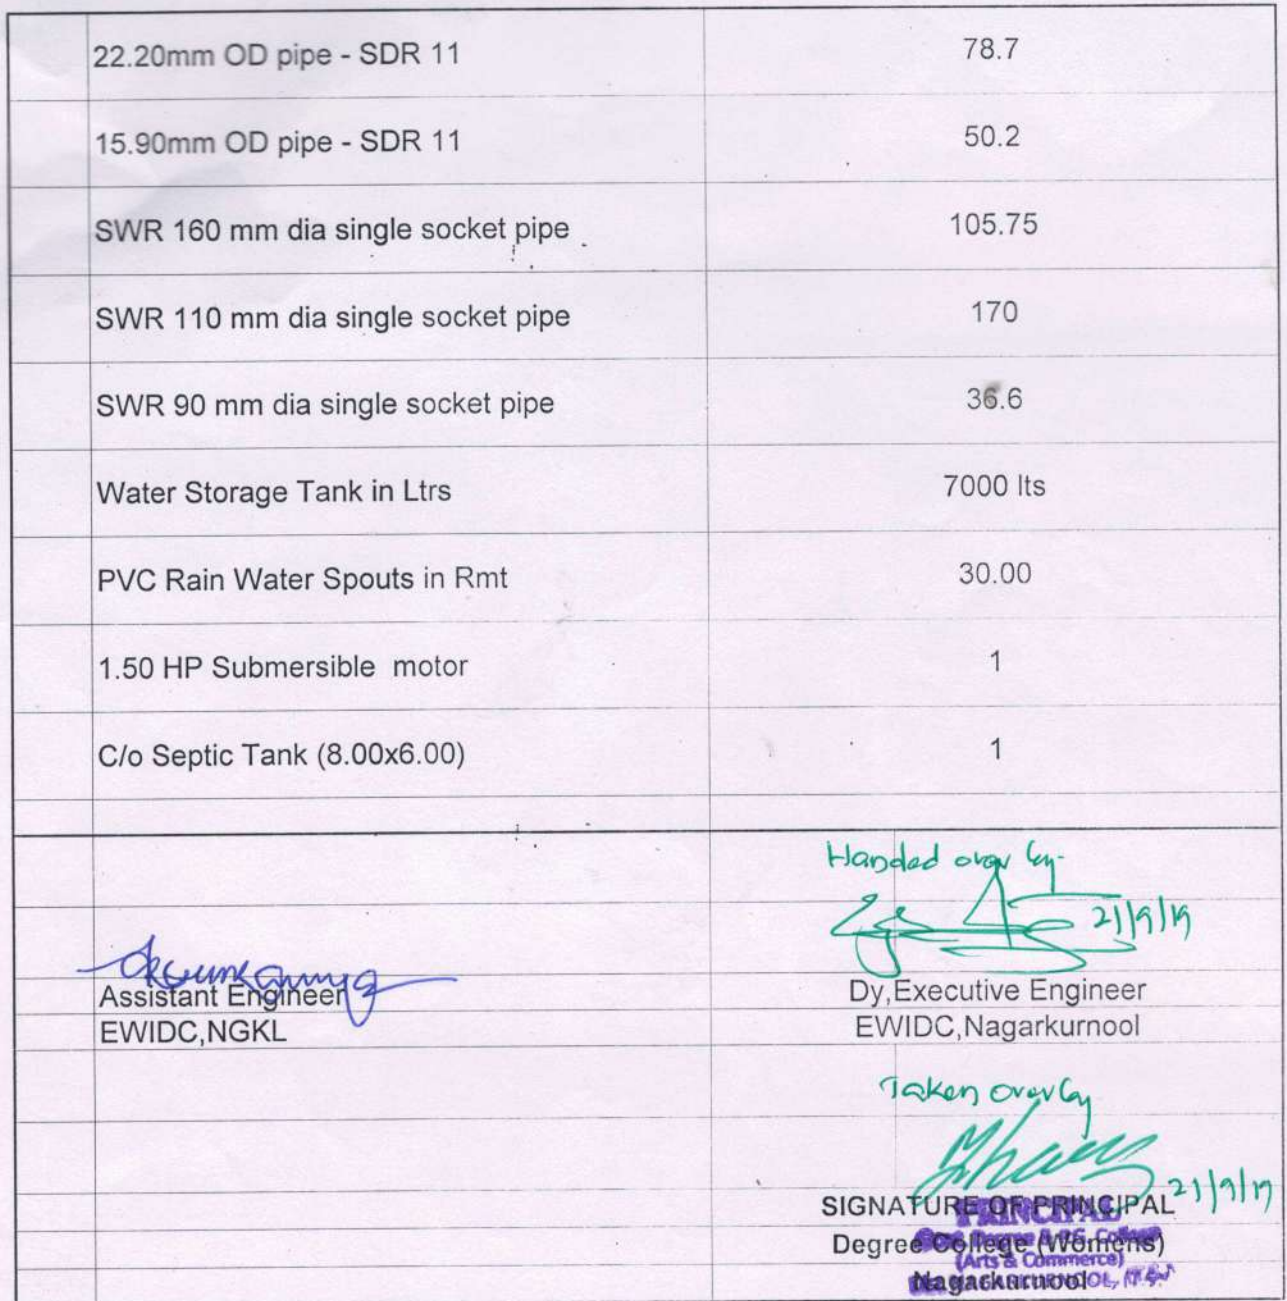 22.20mm OD pipe - SDR 11 78.7
15.90mm OD pipe - SDR 11 50.2
SWR 160 mm dia single socket pipe 105.75
SWR 110 mm dia single socket pipe 170
SWR 90 mm dia single socket pipe 36.6
Water Storage Tank in Ltrs 7000 lts
PVC Rain Water Spouts in Rmt 30.00
1.50 HP Submersible motor 1
C/o Septic Tank (8.00x6.00) 1
Handed over by
21/9/19
Assistant Engineer Dy,Executive Engineer
EWIDC,NGKL EWIDC,Nagarkurnool
Taken over by
21/9/19
SIGNATURE OF PRINCIPAL
PRINCIPAL
Degree College (Womens)
Degree & P.G. College
(Arts & Commerce)
Nagarkurnool